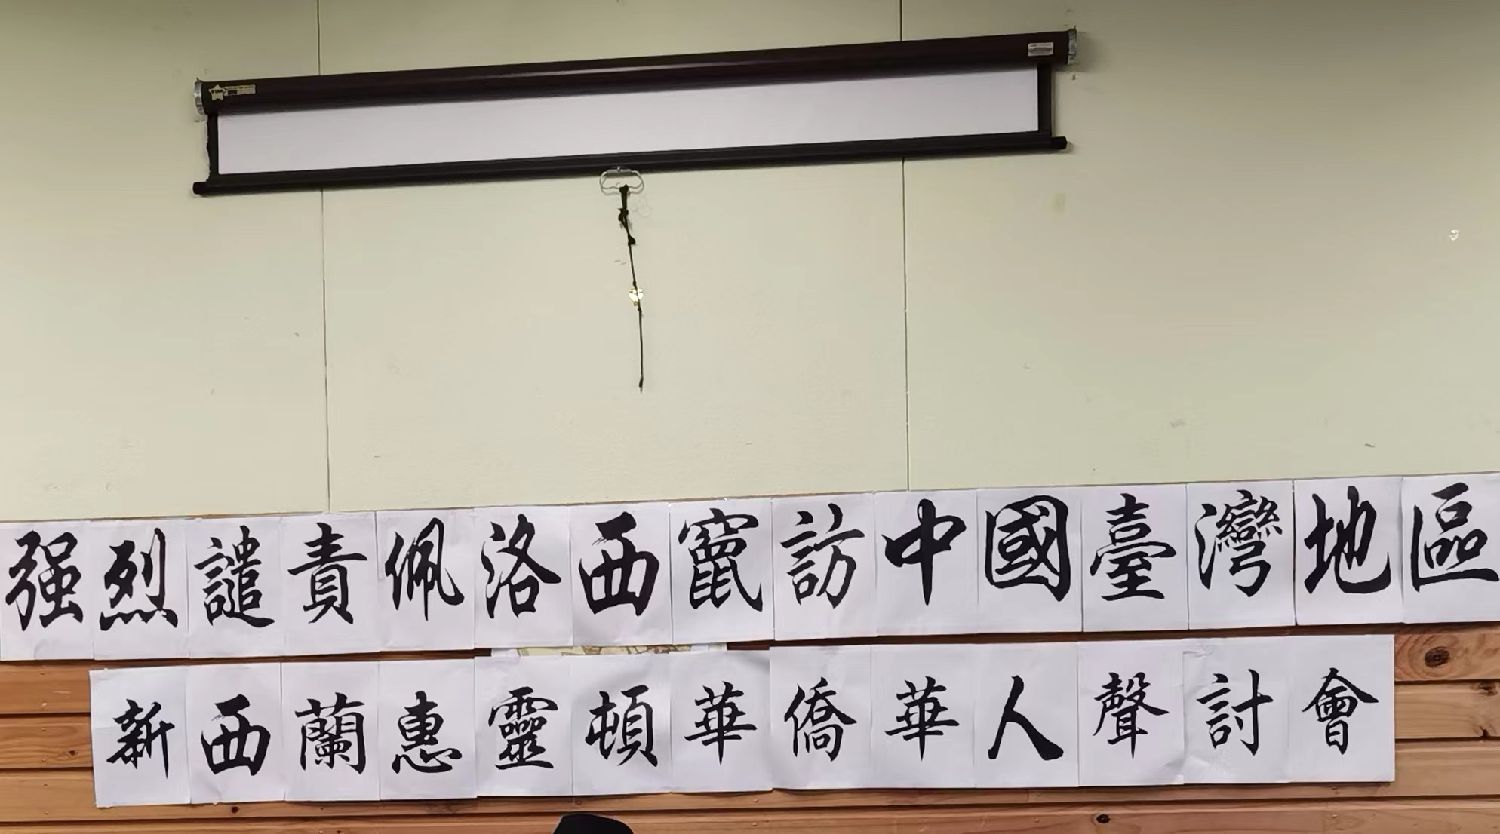 强烈譴責佩洛西竄訪中國臺灣地區
新西蘭惠靈頓華僑華人聲討會